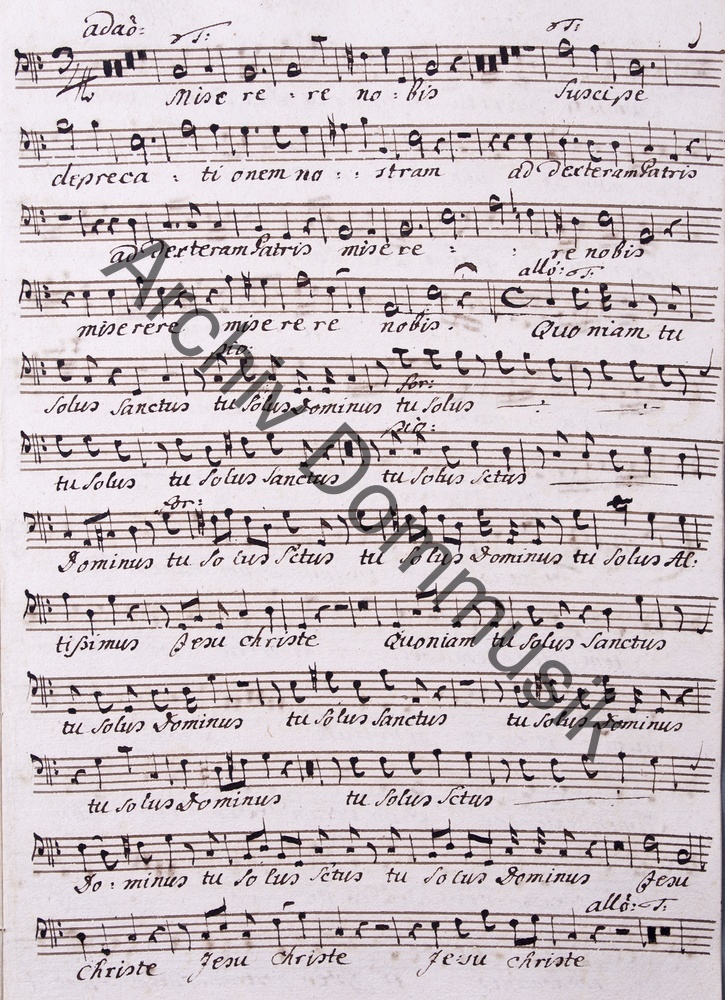 adaõ:
T: T:
Mise re - re no - bis Suscipe
depreca : ti onem no : : stram ad dexteram Patris
ad dexteram Patris mise re - : re nobis
allõ: T:
mise rere mise re re nobis. Quo niam tu
pia:
for:
solus Sanctus tu Solus Dominus tu Solus
pia:
tu Solus tu Solus Sanctus tu Solus Sctus
for:
Dominus tu So lus Sctus tu So lus Dominus tu Solus Al:
tissimus Jesu christe Quoniam tu Solus Sanctus
tu Solus Dominus tu Solus Sanctus tu Solus Dominus
tu Solus Dominus tu Solus Sctus
Do : minus tu So lus Sctus tu So lus Dominus Jesu
allõ: T:
Christe Jesu Christe Jesu christe
Archiv Dommusik